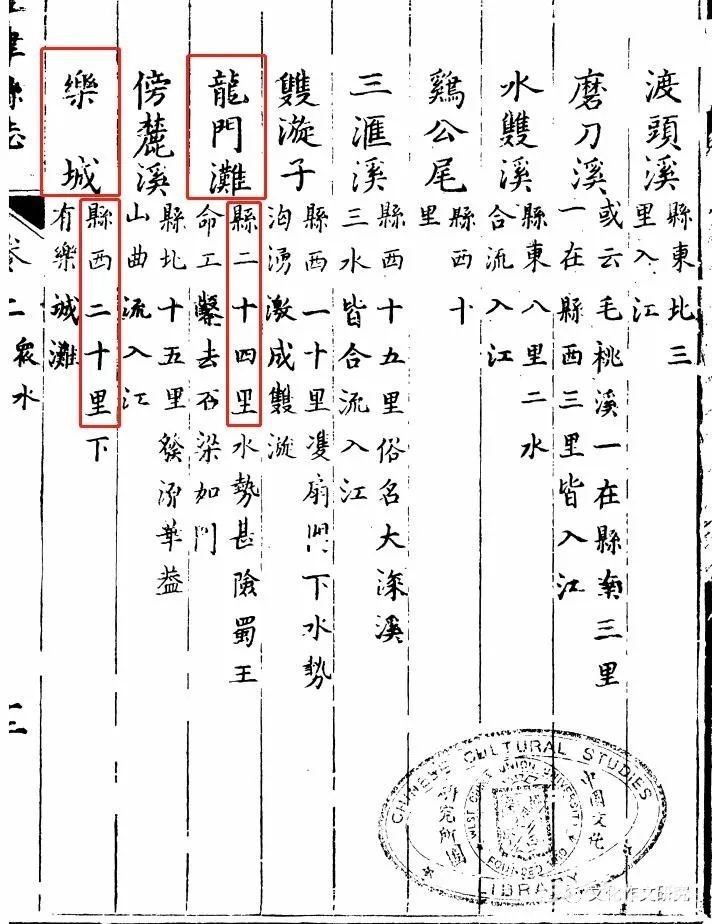 渡頭溪
縣東北三
里入江
磨刀溪
或云毛桃溪一在縣南三里
一在縣西三里皆入江
水雙溪
縣東八里二水
合流入江
鷄公尾
縣西十
里
三滙溪
縣西十五里俗名大深溪
三水皆合流入江
雙漩子
縣西一十里雙扇門下水勢
洶湧激成雙漩
龍門灘
縣二十四里水勢甚險蜀王
命工鑿去石梁如門
傍麓溪
縣北十五里發源華葢
山曲流入江
樂城
縣西二十里下
有樂城灘
津縣志
卷二
衆水
三
CHINESE CULTURAL STUDIES
LIBRARY
WEST CHINA UNION UNIVERSITY
FOUNDED
中國文化
研究所圖
文化作文研究